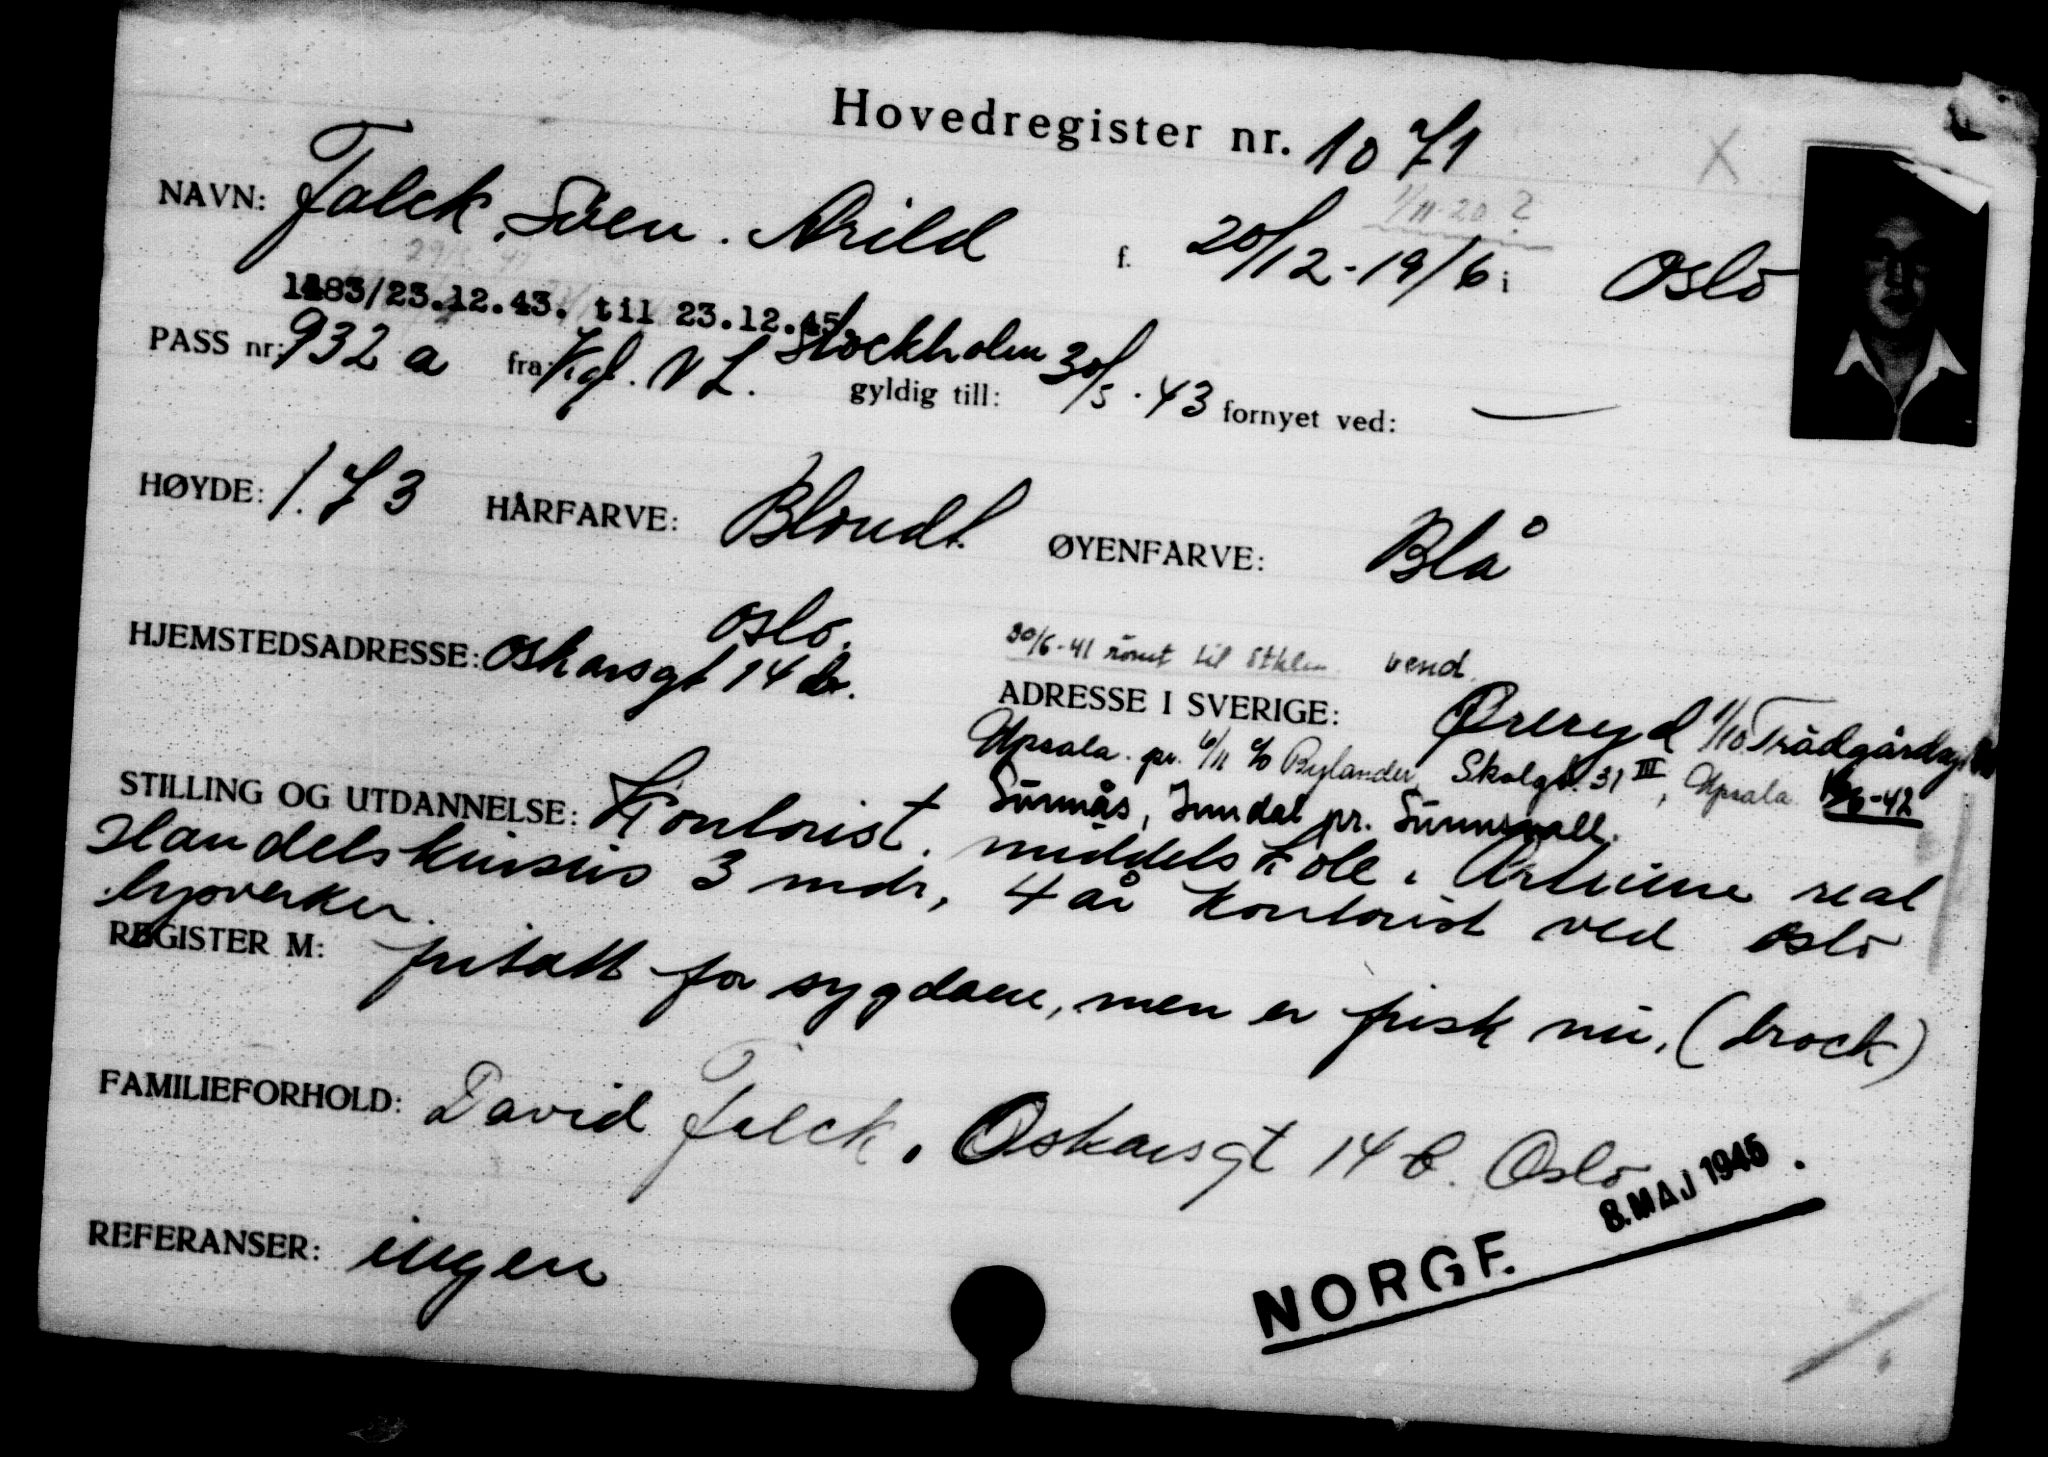 Hovedregister nr. 1071
1/11-20 ?
NAVN: Falck, Sven. Arild f. 20/12-19/6 i Oslo
1183/23.12.43. til 23.12.45
PASS nr: 932 a fra: Kgl. N L. Stockholm gyldig till: 30/5.43 fornyet ved: —
HØYDE: 1.73 HÅRFARVE: Blondt. ØYENFARVE: Blå
HJEMSTEDSADRESSE: Oskarsgt 14 br. Oslo.
30/6-41 til Sthlm vend.
ADRESSE I SVERIGE: Øreryd 1/10 Trädgårdsg.
Upsala. pr. 6/11 c/o Bylander, Skolgt. 31 III, Upsala
Sunnås, Indal pr. Sunnsvall.
STILLING OG UTDANNELSE: Kontorist. middelskole. Artium real
Handelskursus 3 mdr, 4 år kontorist ved Oslo
lysverker.
REGISTER M: fritatt for sygdom, men er frisk nu. (brock)
FAMILIEFORHOLD: David Falck. Oskarsgt 14 b. Oslo
8. MAJ 1945
NORGE.
REFERANSER: ingen